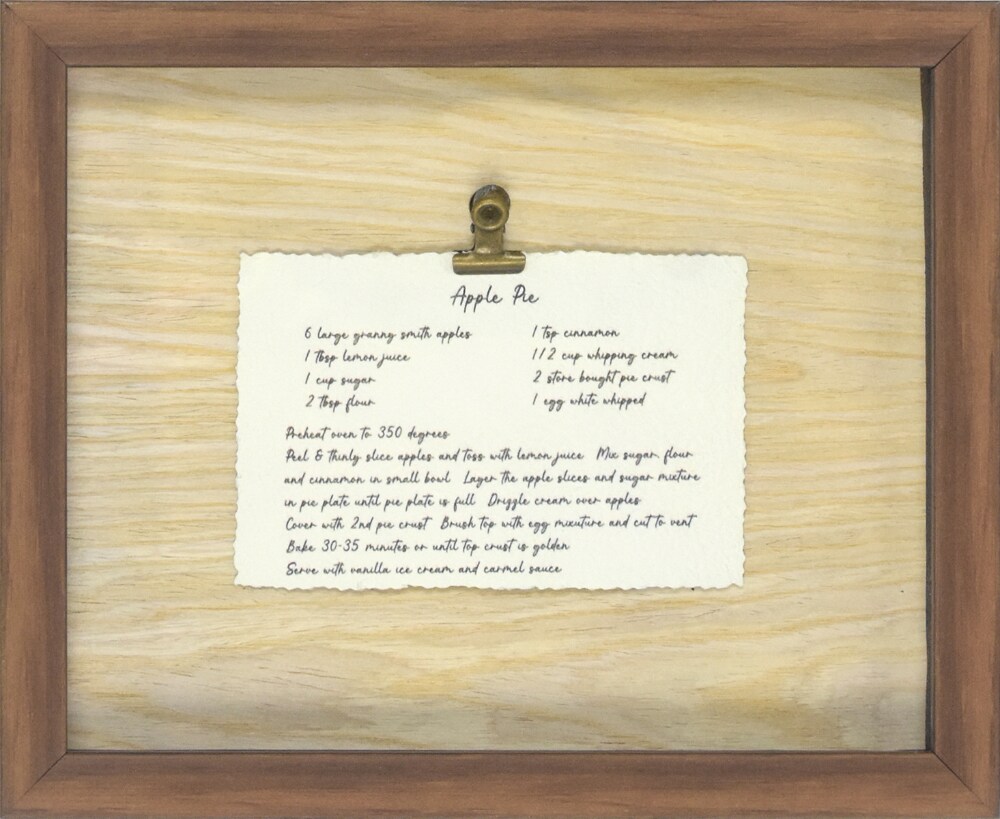 Apple Pie
6 large granny smith apples
1 tbsp lemon juice
1 cup sugar
2 tbsp flour
1 tsp cinnamon
1/2 cup whipping cream
2 store bought pie crust
1 egg white whipped
Preheat oven to 350 degrees
Peel & thinly slice apples and toss with lemon juice Mix sugar, flour
and cinnamon in small bowl Layer the apple slices and sugar mixture
in pie plate until pie plate is full Drizzle cream over apples
Cover with 2nd pie crust Brush top with egg mixuture and cut to vent
Bake 30-35 minutes or until top crust is golden
Serve with vanilla ice cream and carmel sauce